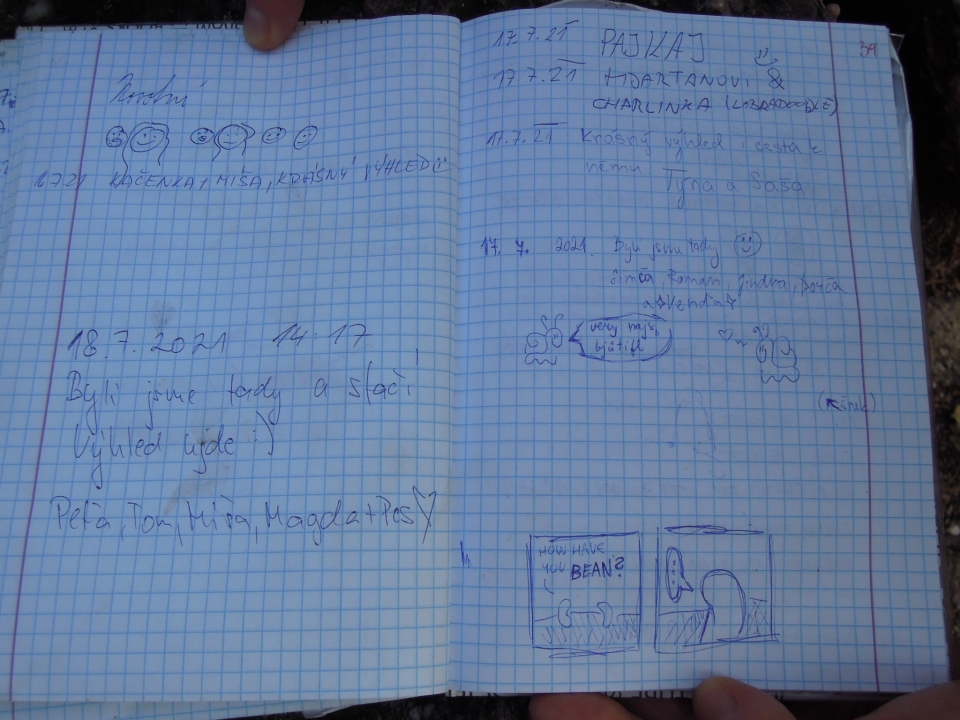 KAČENKA, MIŠA, KRÁSNÝ VÝHLED
18.7.2021 14:17
Byli jsme tady a stačí!
Výhled ujde :)
Peťa, Tom, Míša, Magda + Pes
39
17.7.21 PAJKAJ
17.7.21
&
CHARLINKA
17.7.21 Krásný výhled i cesta k
němu
Týna a Saša
17. 7. 2021. Byli jsme tady
Simča, Roman, Jindra,
a Venda
very najs,
bjútifl
HOW HAVE
YOU BEAN?